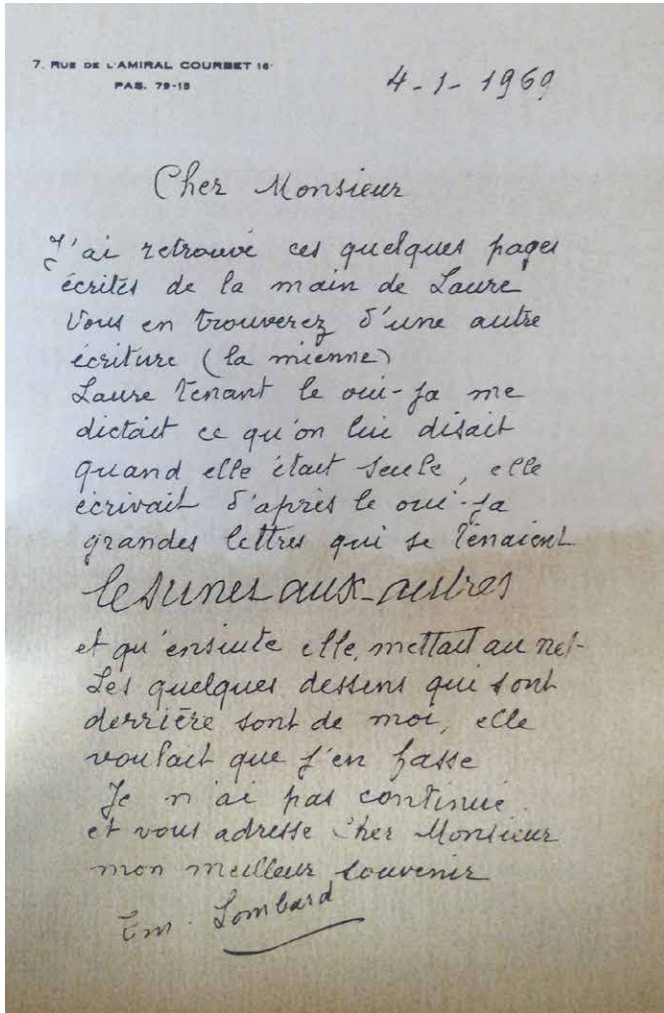 7. RUE DE L'AMIRAL COURBET 16e
PAS. 79-15
4-1-1969
Cher Monsieur
J'ai retrouvé ces quelques pages
écrites de la main de Laure
Vous en trouverez d'une autre
écriture (la mienne)
Laure tenant le oui-ja me
dictait ce qu'on lui disait
quand elle était seule, elle
écrivait d'après le oui-ja
grandes lettres qui se tenaient
les unes aux autres
et qu'ensuite elle mettait au net-
Les quelques dessens qui sont
derrière sont de moi, elle
voulait que j'en fasse
Je n'ai pas continué.
et vous adresse Cher Monsieur
mon meilleur souvenir
Em. Lombard